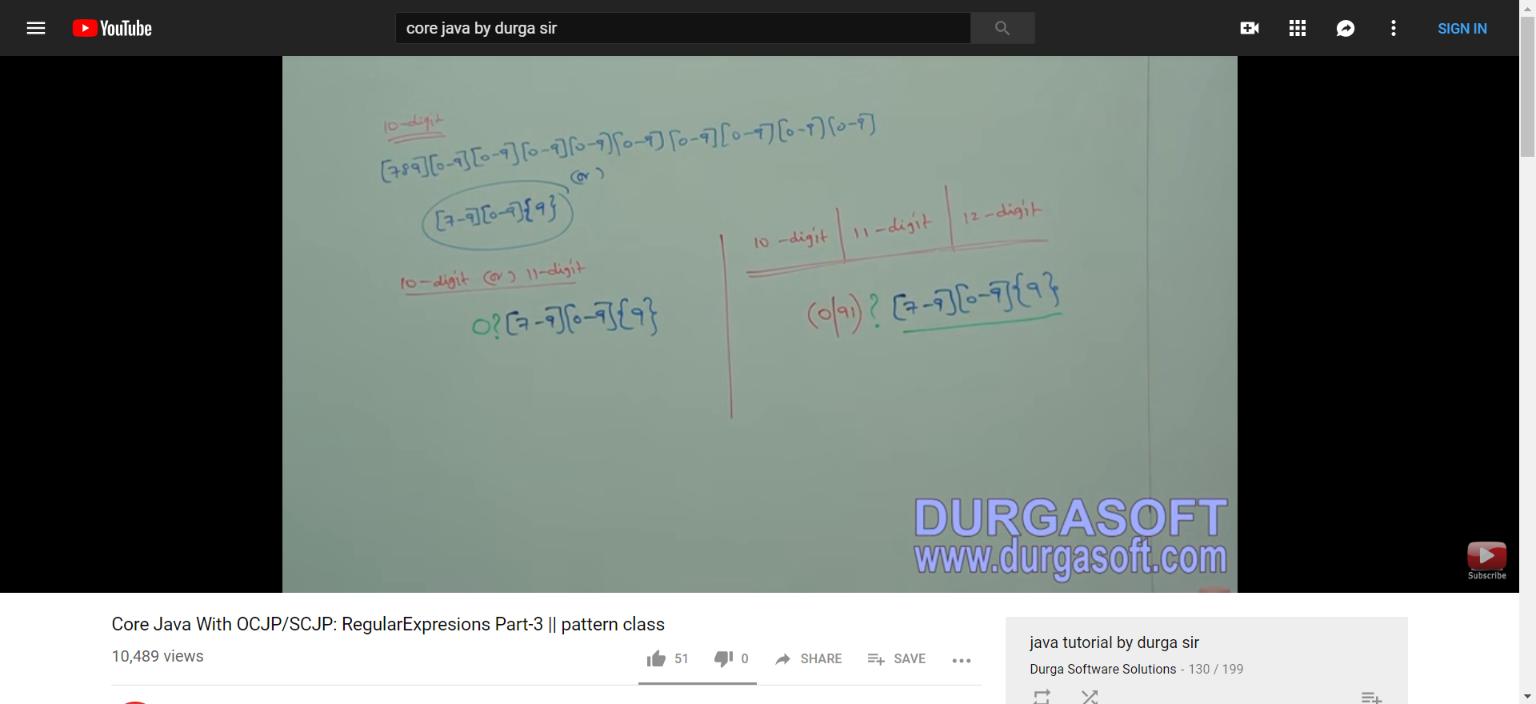 YouTube
core java by durga sir
SIGN IN
10-digit
[789][0-9][0-9][0-9][0-9][0-9][0-9][0-9][0-9][0-9]
(or)
[7-9][0-9]{9}
10-digit (or) 11-digit
0?[7-9][0-9]{9}
10-digit | 11-digit | 12-digit
(0|91)? [7-9][0-9]{9}
DURGASOFT
www.durgasoft.com
Subscribe
Core Java With OCJP/SCJP: RegularExpresions Part-3 || pattern class
10,489 views
51
0
SHARE
SAVE
java tutorial by durga sir
Durga Software Solutions - 130 / 199